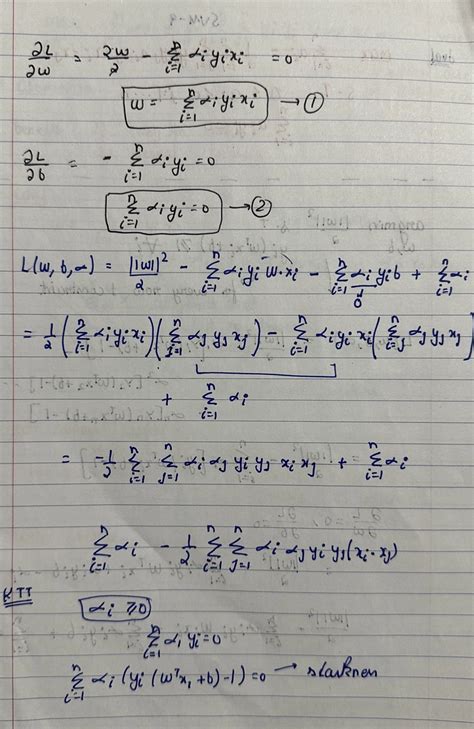 ∂L/∂w = 2w/2 − Σ_{i=1}^{n} α_i y_i x_i = 0
w = Σ_{i=1}^{n} α_i y_i x_i → ①
∂L/∂b = − Σ_{i=1}^{n} α_i y_i = 0
Σ_{i=1}^{n} α_i y_i = 0 → ②
L(w, b, α) = ||w||²/2 − Σ_{i=1}^{n} α_i y_i w·x_i − Σ_{i=1}^{n} α_i y_i b + Σ_{i=1}^{n} α_i
0
= 1/2 (Σ_{i=1}^{n} α_i y_i x_i)(Σ_{j=1}^{n} α_j y_j x_j) − Σ_{i=1}^{n} α_i y_i x_i (Σ_{i=j}^{n} α_j y_j x_j)
+ Σ_{i=1}^{n} α_i
= −1/2 Σ_{i=1}^{n} Σ_{j=1}^{n} α_i α_j y_i y_j x_i x_j + Σ_{i=1}^{n} α_i
Σ_{i=1}^{n} α_i − 1/2 Σ_{i=1}^{n} Σ_{j=1}^{n} α_i α_j y_i y_j (x_i · x_j)
KTT
α_i ≥ 0
Σ_{i=1}^{n} α_i y_i = 0
Σ_{i=1}^{n} α_i (y_i (wᵀx_i + b) − 1) = 0 → slackness